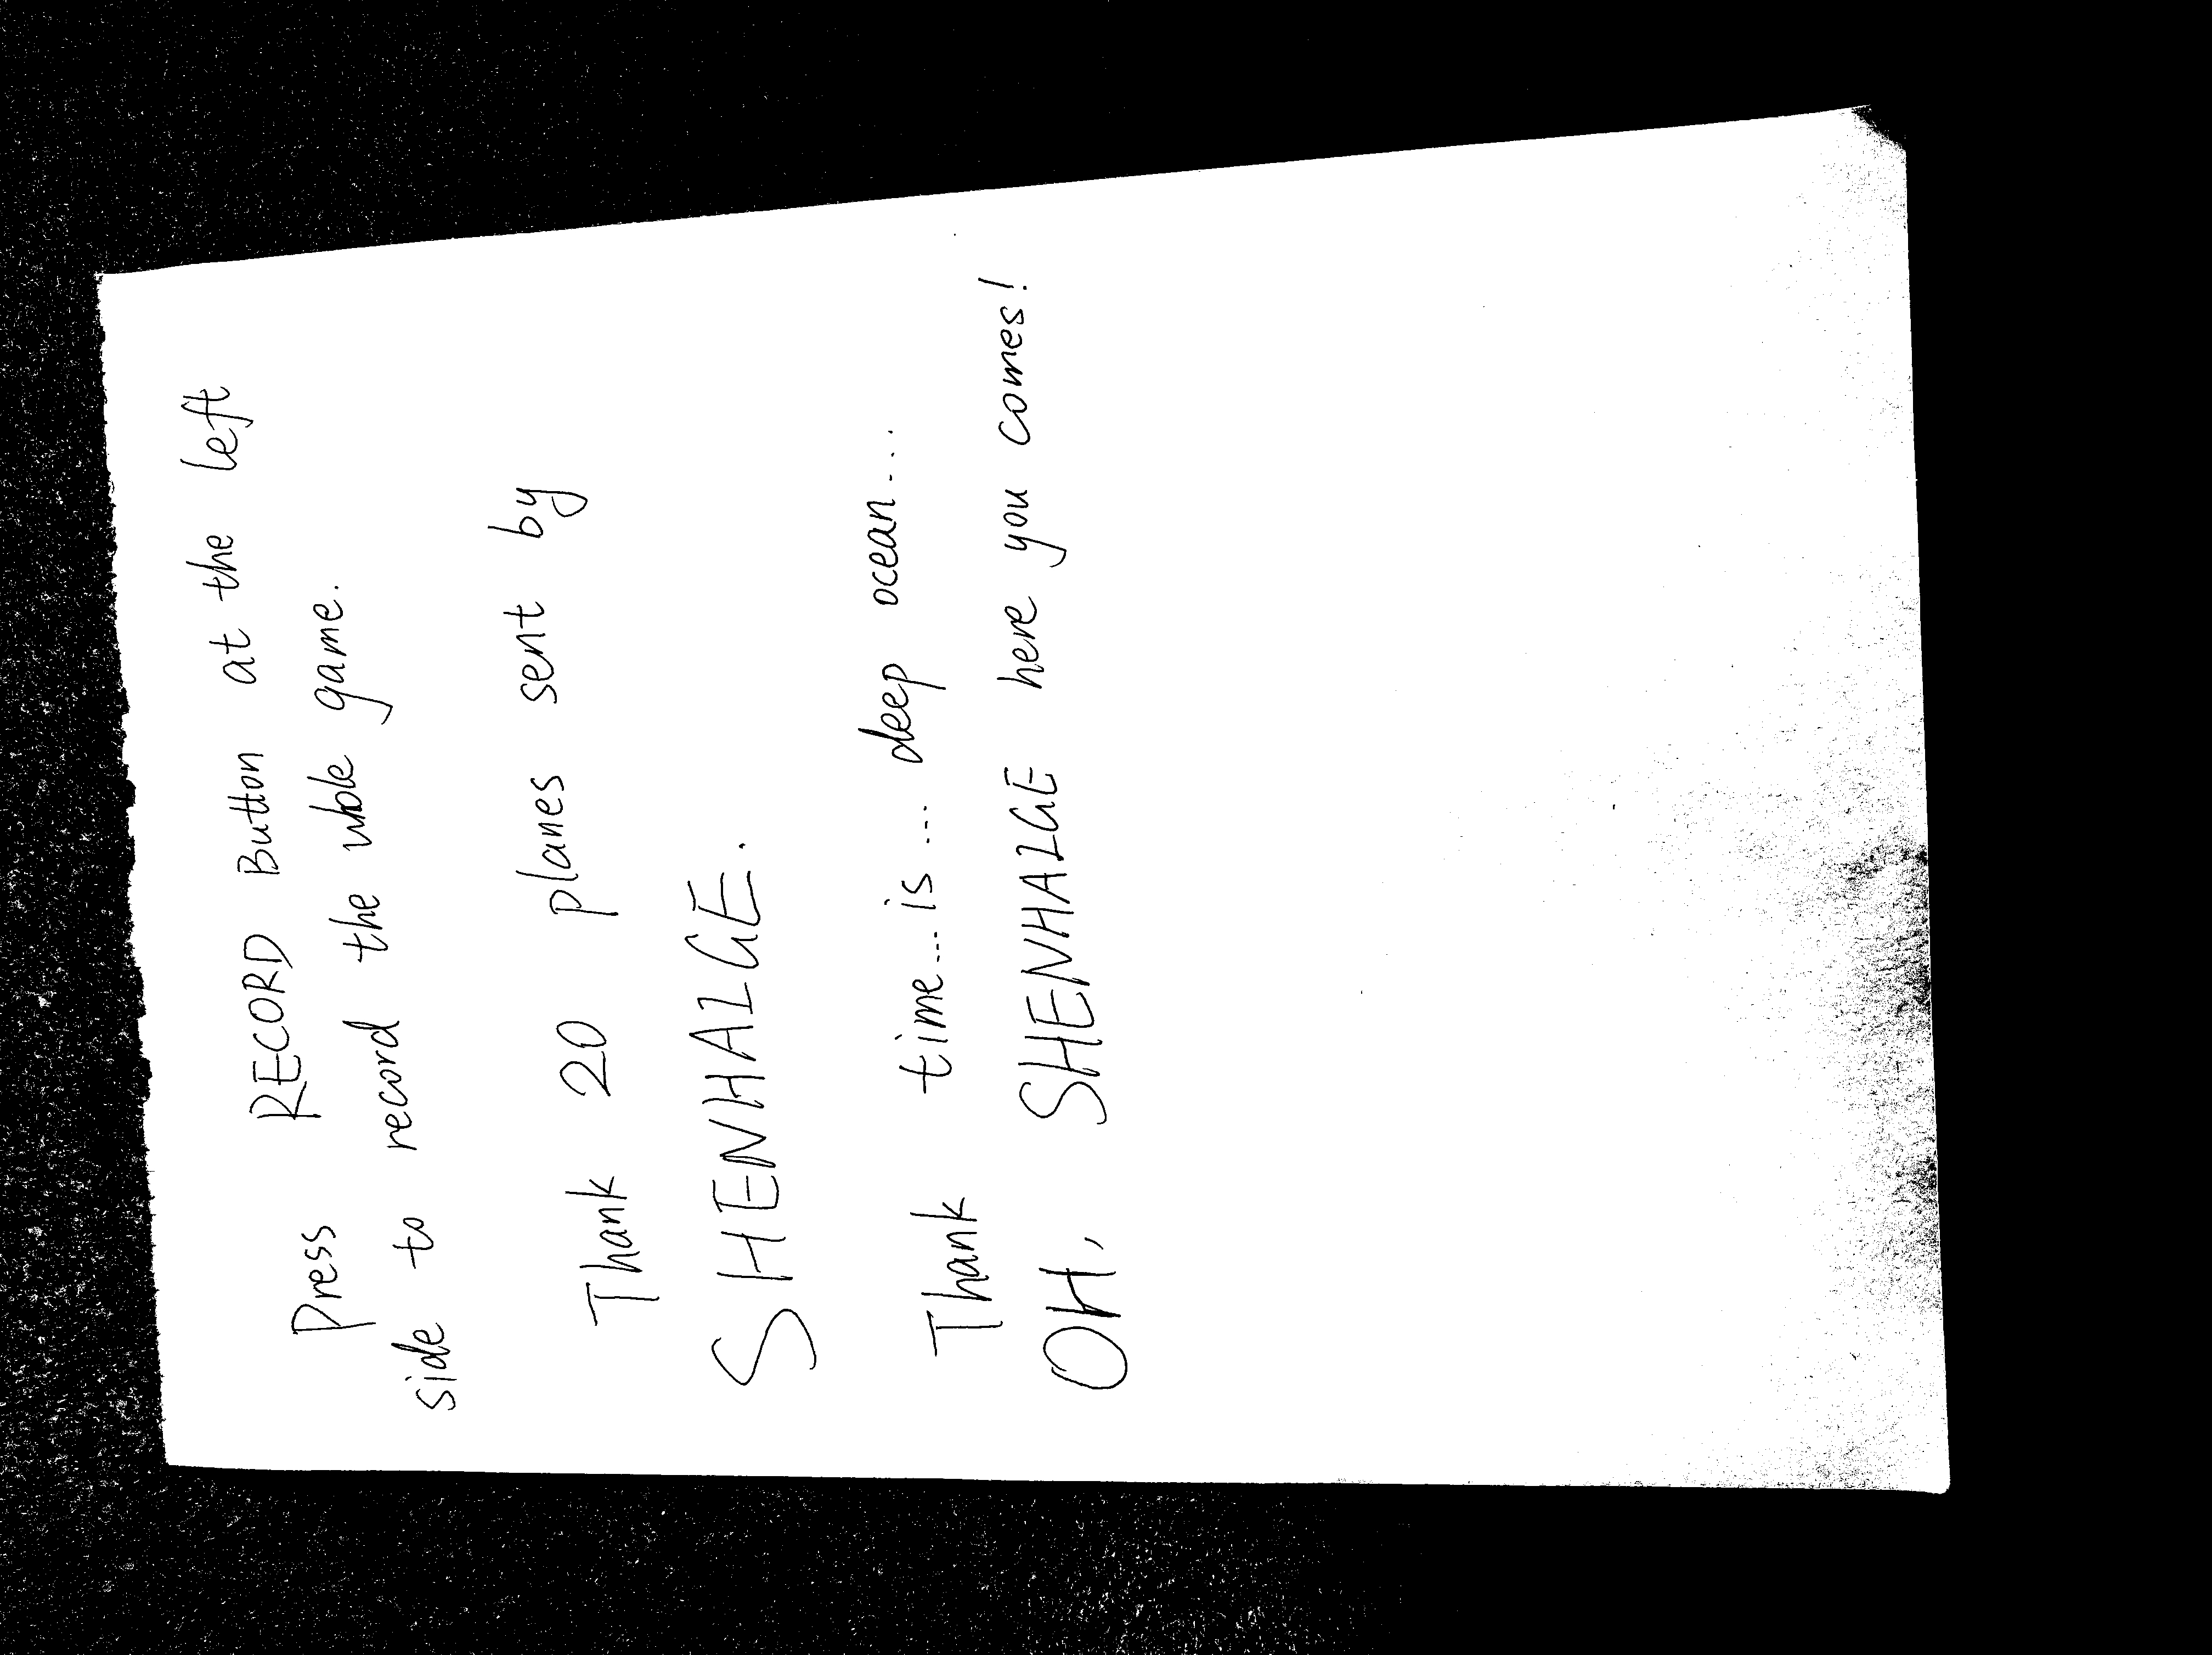 Press RECORD Button at the left
side to record the whole game.
Thank 20 planes sent by
SHENHAIGE.
Thank time....is.... deep ocean....
OH, SHENHAIGE here you comes!